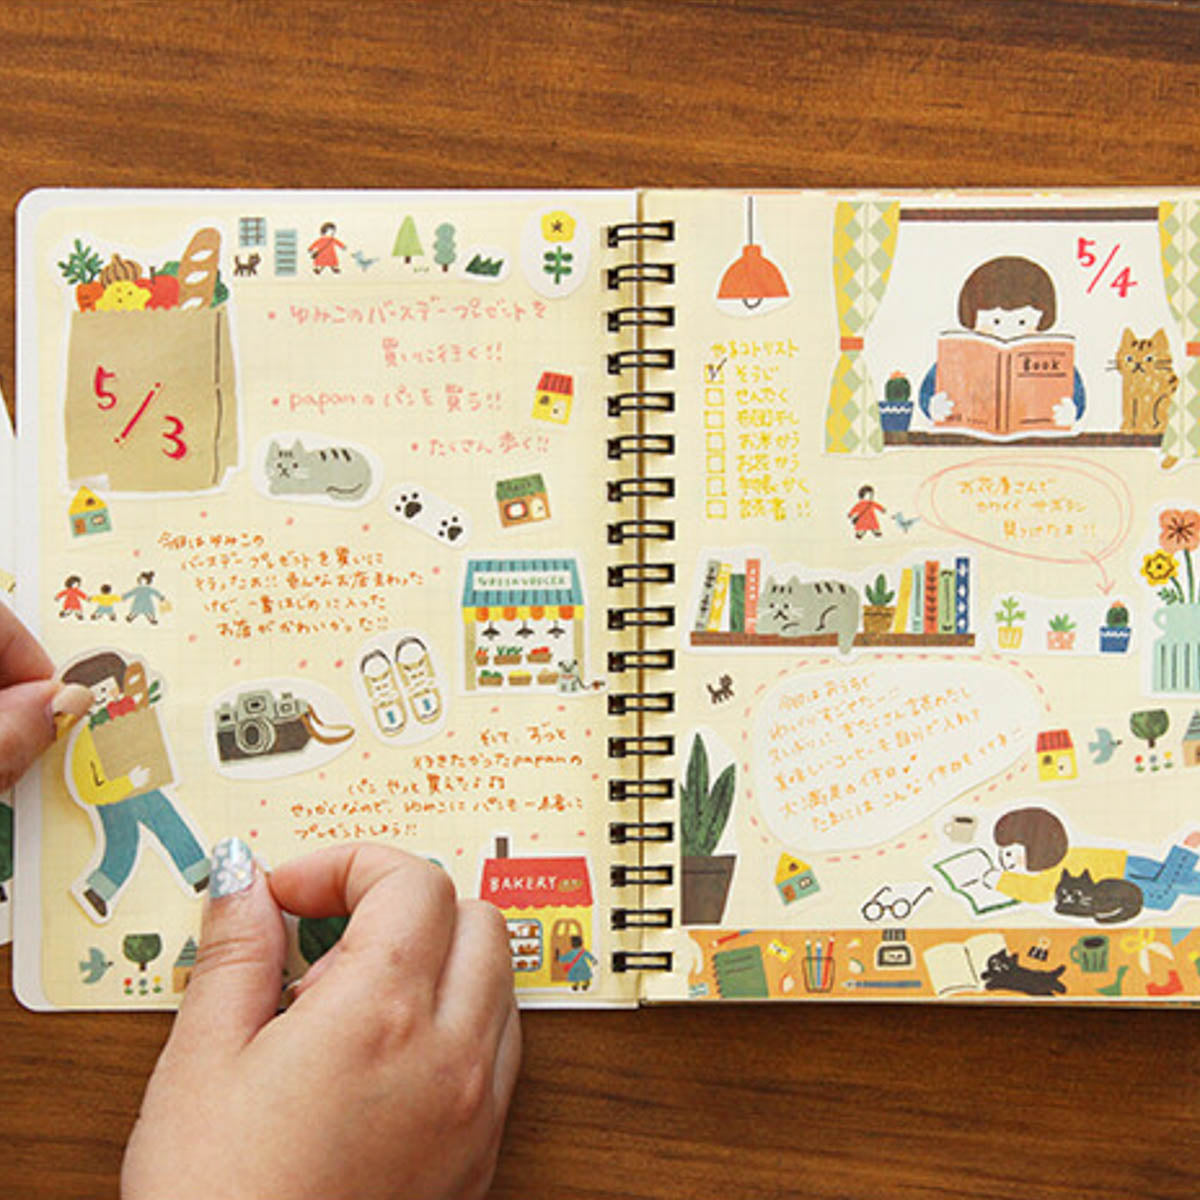 5/3
・ゆみこのバースデープレゼントを
買いに行く!!
・papanのパンを買う!!
・たくさん歩く!!
今日はゆみこの
バースデープレゼントを買いに
そうったお!! 色んなお店まわった
けど、一番はじめに入った
お店がかわいかった!!
GREENGROCER
そして、ずっと
行きたかったpapanの
パン やっと買えたよ
せっかくなので、ゆみこに パンも一緒に
プレゼントしよう!!
BAKERY
5/4
Book
やるコトリスト
そうじ
せんたく
布団干し
お米かう
お花かう
手帳かく
読書!!
お花屋さんで
カワイイサボテン
見つけたヨ!!
今日は
美味しいコーヒーを自分で入れて
大満足の休日
たまにはこんな休日も